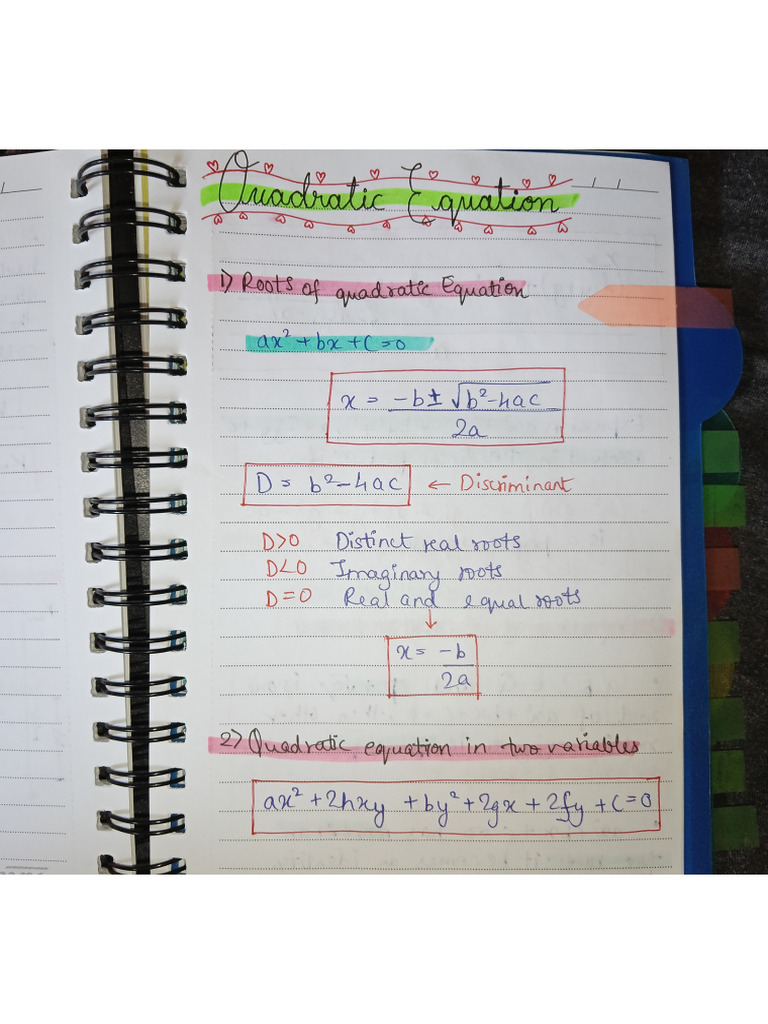 Quadratic Equation
1) Roots of quadratic Equation
ax² + bx + c = 0
x = -b ± √b²-4ac
2a
D = b² - 4ac ← Discriminant
D>0 Distinct real roots
D<0 Imaginary roots
D=0 Real and equal roots
↓
x = -b
2a
2) Quadratic equation in two variables
ax² + 2hxy + by² + 2gx + 2fy + c = 0